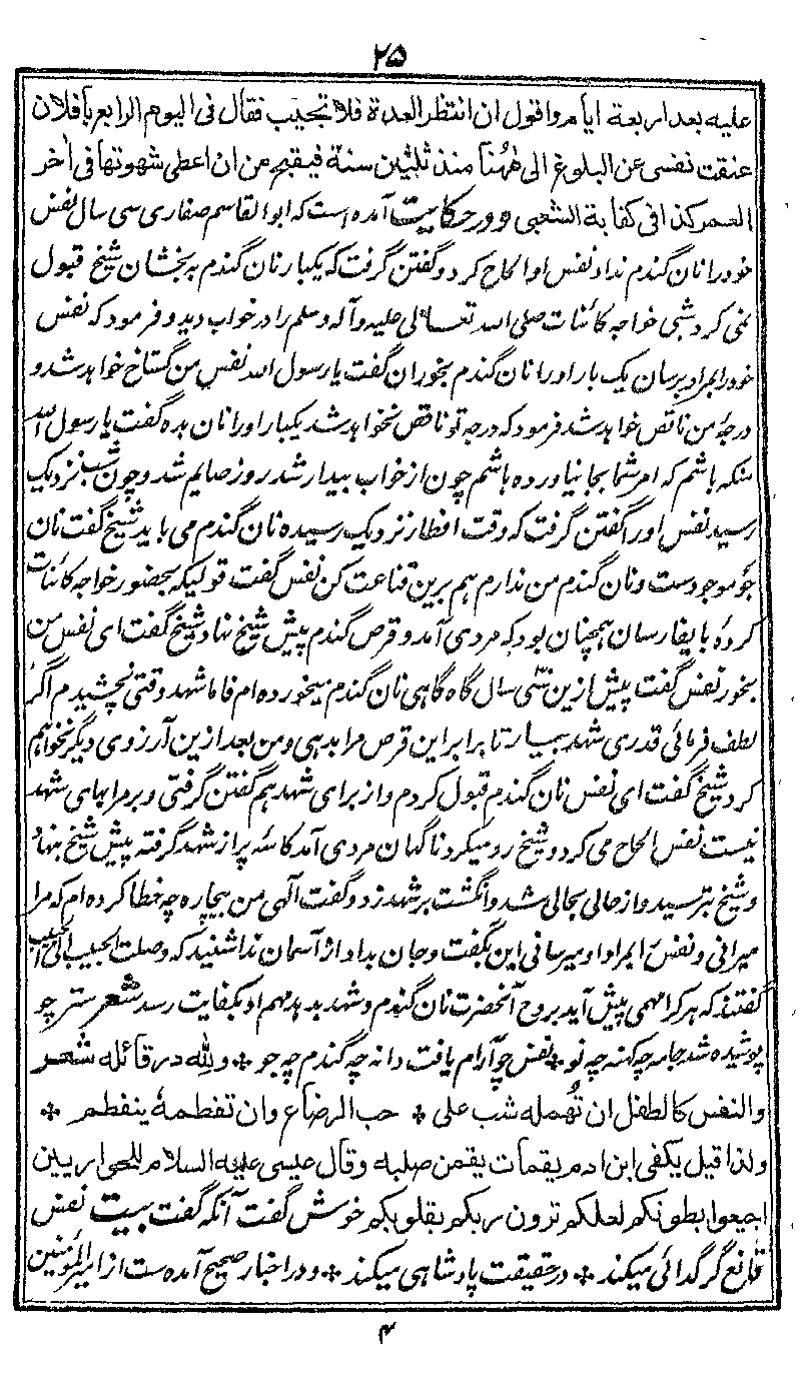 ۲۵
علیه بعد اربعة ایام واقول ان انتظر العدة فلا تجیب فقال فی الیوم الرابع یا فلان
عنقت نفسی عن البلوغ الی ههنا منذ ثلثین سنة فیقبح من ان اعطی شهوتها فی اخر
العمر کذا فی کفایة الشعبی و در حکایت آمده است که ابو القاسم صفاری سی سال نفس
خود را نان گندم نداد نفس او الحاح کرد و گفتن گرفت که یکبار نان گندم به بخشان شیخ قبول
نمی کرد شبی خواجه کائنات صلی الله تعالی علیه وآله وسلم را در خواب دید و فرمود که نفس
خود را بمراد برسان یک بار او را نان گندم بخوران گفت یا رسول الله نفس من گستاخ خواهد شد و
درجه من ناقص خواهد شد فرمود که درجه تو ناقص نخواهد شد یکبار او را نان بده گفت یا رسول الله
سگ باشم که امر شما بجا نیاورده باشم چون از خواب بیدار شد روز صایم شد و چون شب نزدیک
رسید نفس او را گفتن گرفت که وقت افطار نزدیک رسیده نان گندم می باید شیخ گفت نان
جو موجودست و نان گندم من ندارم هم برین قناعت کن نفس گفت قولیکه بحضور خواجه کائنات
کرده بایفا رسان همچنان بود که مردی آمد و قرص گندم پیش شیخ نهاد شیخ گفت ای نفس من
بخور نفس گفت پیش ازین سی سال گاه گاهی نان گندم میخورده ام فاما شهد وقتی نچشیدم اگر
لطف فرمائی قدری شهد بیار تا برابر این قرص مرا بدهی و من بعد ازین آرزوی دیگر نخواهم
کرد شیخ گفت ای نفس نان گندم قبول کردم و از برای شهد هم گفتن گرفتی و بر مرا بهای شهد
نیست نفس الحاح می کرد و شیخ رد میکرد ناگهان مردی آمد کاسه پر از شهد گرفته پیش شیخ بنهاد
و شیخ بترسید و از حالی بحالی شد و انگشت بر شهد زد و گفت الهی من بیچاره چه خطا کرده ام که مرا
میرانی و نفس را بمراد او میرسانی این بگفت و جان بداد از آسمان ندا شنیدند که وصلت الحبیب الی الحبیب
گفتند که هر کرا مهمی پیش آید بروح آنحضرت نان گندم و شهد بدهد مهم او بکفایت رسد شعر ستر چو
پوشیده شد جامه چه کهنه چه نو * نفس چو آرام یافت دانه چه گندم چه جو * ولله در قائله شعر
والنفس کالطفل ان تُهمله شب علی * حب الرضاع وان تفطمهُ ینفطم *
ولذا قیل یکفی ابن ادم یقمات یقمن صلبه وقال عیسی علیه السلام للحواریین
اجیعوا بطونکم لعلکم ترون ربکم بقلوبکم خوش گفت آنکه گفت بیت نفس
قانع گر گدائی میکند * در حقیقت پادشاهی میکند * و در اخبار صحیح آمده ست از امیر المؤمنین
۴